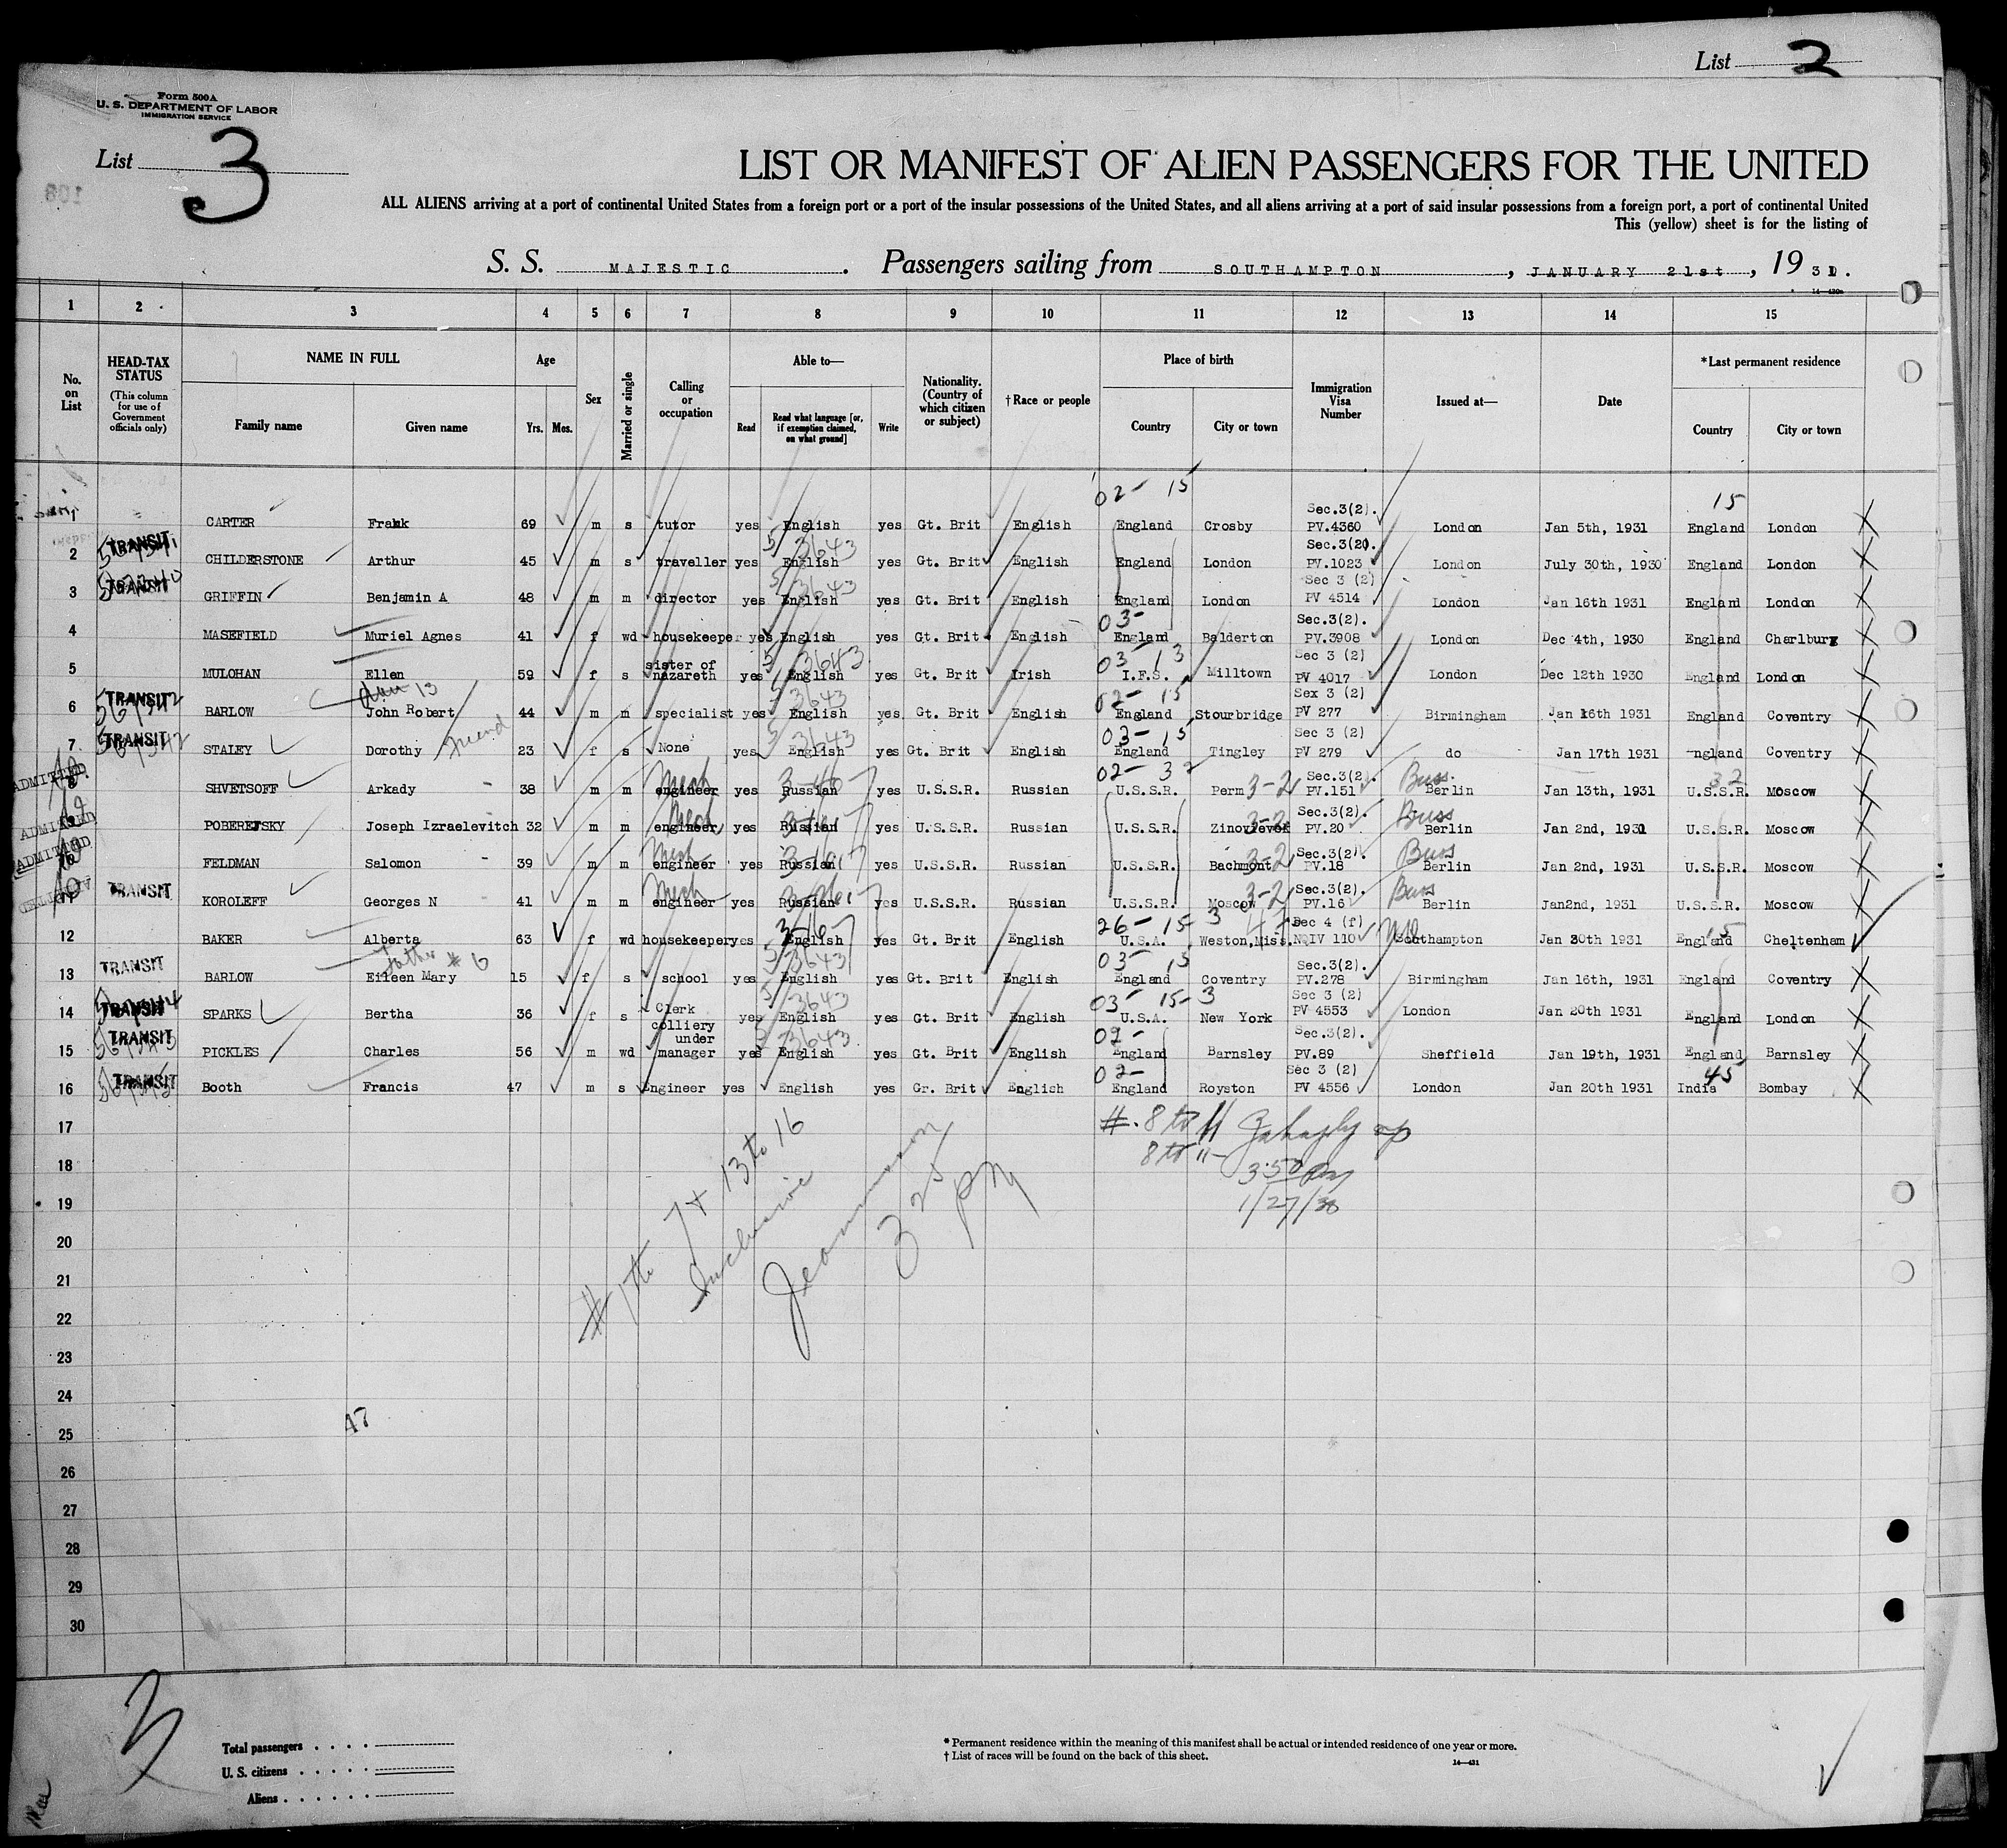 List 2
Form 500A
U. S. DEPARTMENT OF LABOR
IMMIGRATION SERVICE
List 3
LIST OR MANIFEST OF ALIEN PASSENGERS FOR THE UNITED
ALL ALIENS arriving at a port of continental United States from a foreign port or a port of the insular possessions of the United States, and all aliens arriving at a port of said insular possessions from a foreign port, a port of continental United
This (yellow) sheet is for the listing of
S. S. MAJESTIC. Passengers sailing from SOUTHAMPTON, JANUARY 21st, 1931.
1 2 3 4 5 6 7 8 9 10 11 12 13 14 15
No. on List
HEAD-TAX STATUS (This column for use of Government officials only)
NAME IN FULL
Family name Given name
Age
Yrs. Mos.
Sex
Married or single
Calling or occupation
Able to—
Read Read what language [or, if exemption claimed, on what ground] Write
Nationality. (Country of which citizen or subject)
† Race or people
Place of birth
Country City or town
Immigration Visa Number
Issued at—
Date
*Last permanent residence
Country City or town
02- 15 15
1 CARTER Frank 69 m s tutor yes English yes Gt. Brit English England Crosby Sec.3(2). PV.4360 London Jan 5th, 1931 England London
2 TRANSIT CHILDERSTONE Arthur 45 m s traveller yes English yes Gt. Brit English England London Sec.3(2). PV.1023 London July 30th, 1930 England London
3 TRANSIT GRIFFIN Benjamin A 48 m m director yes English yes Gt. Brit English England London Sec 3 (2) PV 4514 London Jan 16th 1931 England London
4 MASEFIELD Muriel Agnes 41 f wd housekeeper yes English yes Gt. Brit English 03- England Balderton Sec.3(2). PV.3908 London Dec 4th, 1930 England Charlbury
5 MULOHAN Ellen 59 f s sister of nazareth yes English yes Gt. Brit Irish 03 13 I.F.S. Milltown Sec 3 (2) PV 4017 London Dec 12th 1930 England London
6 TRANSIT BARLOW John Robert 44 m m specialist yes English yes Gt. Brit English 02- 15 England Stourbridge Sex 3 (2) PV 277 Birmingham Jan 16th 1931 England Coventry
7 TRANSIT STALEY Dorothy friend 23 f s None yes English yes Gt. Brit English 03- 15 England Tingley Sec 3 (2) PV 279 do Jan 17th 1931 England Coventry
8 ADMITTED SHVETSOFF Arkady 38 m m Mech engineer yes Russian yes U.S.S.R. Russian 02- 32 U.S.S.R. Perm 3-2 Sec.3(2). PV.151 Berlin Jan 13th, 1931 32 U.S.S.R. Moscow
ADMITTED POBEREJSKY Joseph Izraelevitch 32 m m Mech engineer yes Russian yes U.S.S.R. Russian U.S.S.R. Zinovievek 3-2 Sec.3(2). PV.20 Berlin Jan 2nd, 1931 U.S.S.R. Moscow
ADMITTED FELDMAN Salomon 39 m m Mech engineer yes Russian yes U.S.S.R. Russian U.S.S.R. Bachmont 3-2 Sec.3(2). PV.18 Berlin Jan 2nd, 1931 U.S.S.R. Moscow
11 TRANSIT KOROLEFF Georges N 41 m m Mech engineer yes Russian yes U.S.S.R. Russian U.S.S.R. Moscow 3-2 Sec.3(2). PV.16 Berlin Jan2nd, 1931 U.S.S.R. Moscow
12 BAKER Alberta 63 f wd housekeeper yes English yes Gt. Brit English 26- 15- 3 U.S.A. Weston,Miss. Dec 4 (f) NQIV 110 Southampton Jan 20th 1931 England Cheltenham
13 TRANSIT BARLOW Father # 6 Eileen Mary 15 f s school yes English yes Gt. Brit English 03 15 England Coventry Sec.3(2). PV.278 Birmingham Jan 16th, 1931 England Coventry
14 TRANSIT SPARKS Bertha 36 f s Clerk yes English yes Gt. Brit English 03- 15- 3 U.S.A. New York Sec 3 (2) PV 4553 London Jan 20th 1931 England London
15 TRANSIT PICKLES Charles 56 m wd colliery under manager yes English yes Gt. Brit English 02- England Barnsley Sec.3(2). PV.89 Sheffield Jan 19th, 1931 England Barnsley
16 TRANSIT Booth Francis 47 m s Engineer yes English yes Gr. Brit English 02- England Royston Sec 3 (2) PV 4556 London Jan 20th 1931 45 India Bombay
17 #. 8 to 11
18 8 to 11- 3 50 Pm
19 1/27/30
20
21
22
23
24
25
26
27
28
29
30
7+ 13 to 16
Inclusive
3 25
PM
47
Total passengers . . . .
U. S. citizens . . . . .
Aliens . . . . . .
* Permanent residence within the meaning of this manifest shall be actual or intended residence of one year or more.
† List of races will be found on the back of this sheet.
14—431